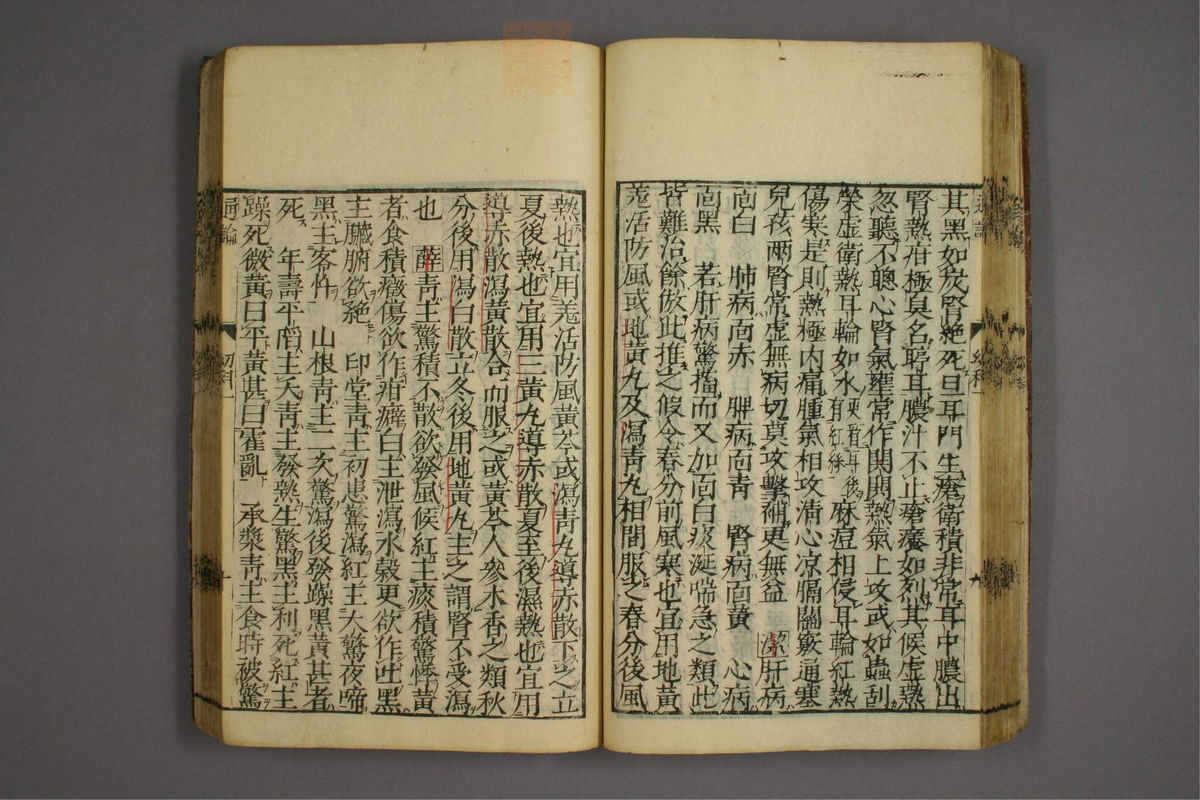 其黑如炭腎絕死旦耳門生瘡衛積非常耳中膿出
腎熱疳極臭名聤耳膿汁不止瘡癢如烈其候虛熱
忽聽不聰心腎氣壅常作閧閧熱氣上攻或如蟲刮
榮虛衛熱耳輪如水更看耳後有紅絲麻痘相侵耳輪紅熱
傷寒是則熱極內痛腫氣相攻清心凉膈關竅通塞
兒孩兩腎常虛無病切莫攻擊補更無益 潔肝病
面白 肺病面赤 脾病面青 腎病面黃 心病
面黑 若肝病驚搐而又加面白痰涎喘急之類此
皆難治餘倣此推之假令春分前風寒也宜用地黃
羗活防風或地黃九及瀉青九相間服之春分後風
熱也宜用羗活防風黃芩或瀉青九導赤散下之立
夏後熱也宜用三黃九導赤散夏至後濕熱也宜用
導赤散瀉黃散合而服之或黃芩人參木香之類秋
分後用瀉白散立冬後用地黃九主之謂腎不受瀉
也 薛青主驚積不散欲發風候紅主痰積驚悸黃
者食積癥傷欲作疳癖白主泄瀉水穀更欲作吐黑
主臟腑欲絕 印堂青主初患驚瀉紅主大驚夜啼
黑主客忤 山根青主二次驚瀉後發躁黑黃甚者
死 年壽平陷主夭青主發熱生驚黑主利死紅主
躁死微黃曰平黃甚曰霍亂 承漿青主食時被驚